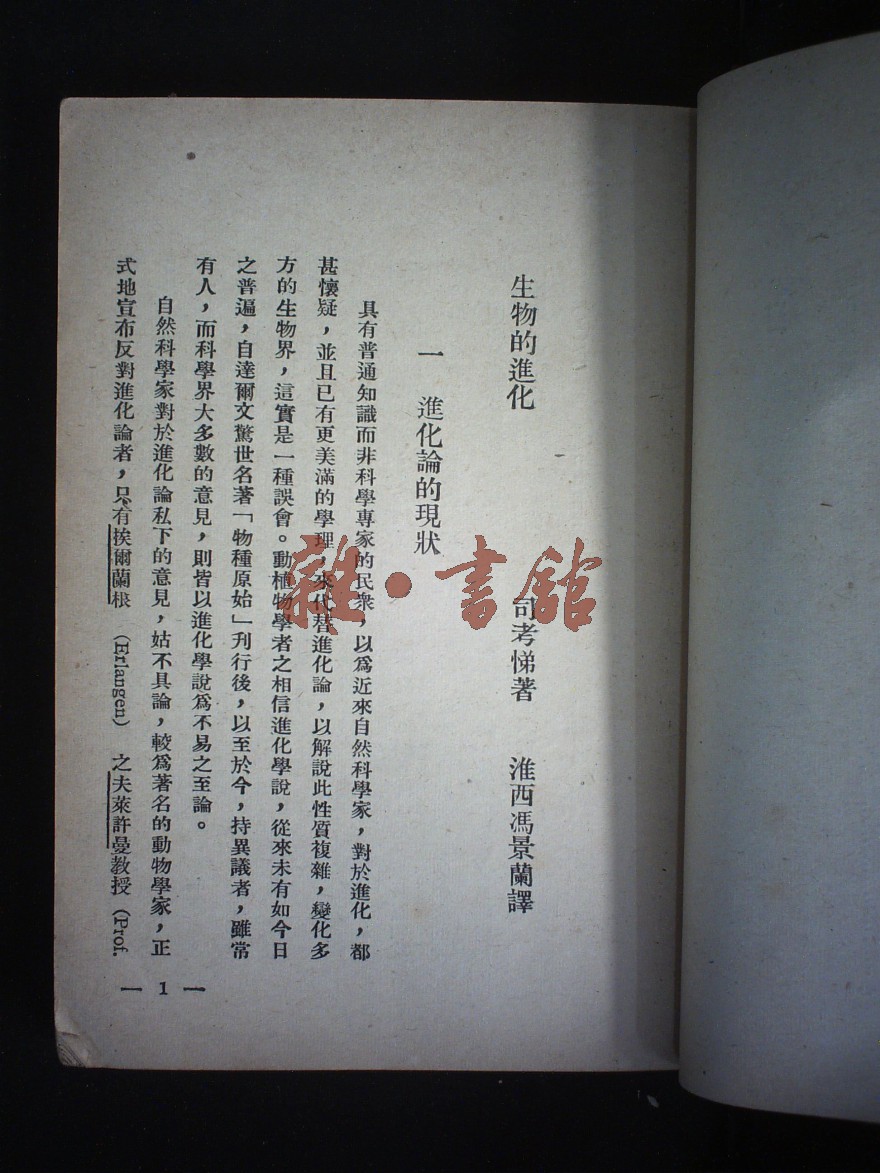 生物的進化
司考悌著 淮西馮景蘭譯
一 進化論的現狀
具有普通知識而非科學專家的民衆，以爲近來自然科學家，對於進化，都
甚懷疑，並且已有更美滿的學理，來代替進化論，以解說此性質複雜，變化多
方的生物界，這實是一種誤會。動植物學者之相信進化學說，從來未有如今日
之普遍，自達爾文驚世名著「物種原始」刋行後，以至於今，持異議者，雖常
有人，而科學界大多數的意見，則皆以進化學說爲不易之至論。
自然科學家對於進化論私下的意見，姑不具論，較爲著名的動物學家，正
式地宣布反對進化論者，只有挨爾蘭根（Erlangen）之夫萊許曼教授（Prof.
— 1 —
雜·書館